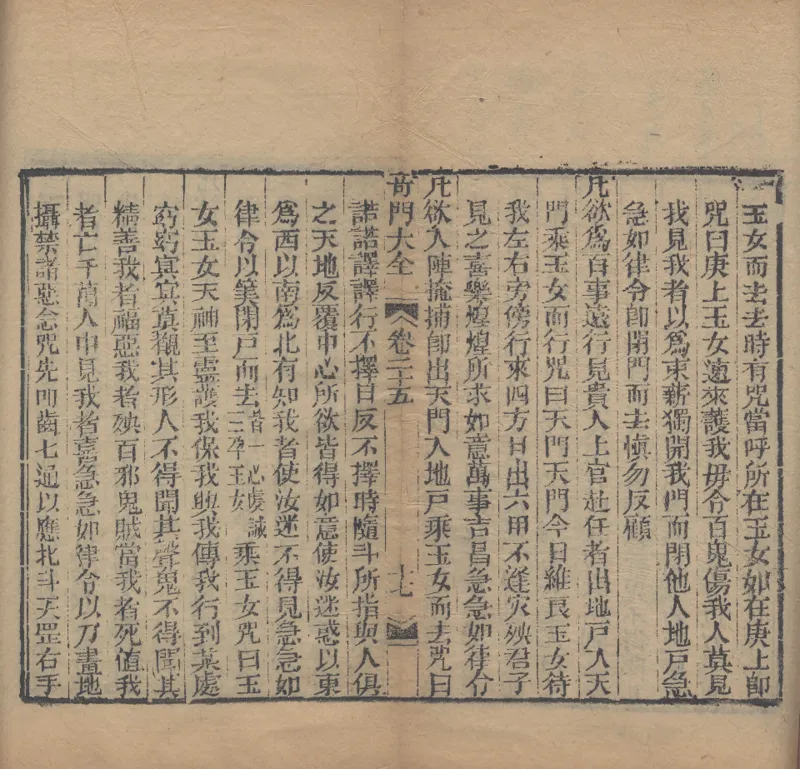 玉女而去去時有咒當呼所在玉女如在庚上卽
咒曰庚上玉女適來護我毋令百鬼傷我人莫見
我見我者以爲束薪獨開我門而閉他人地戸急
急如律令卽閉門而去愼勿反顧
凡欲爲百事遠行見貴人上官赴任者出地戸入天
門乘玉女而行咒曰天門天門今日維良玉女待
我左右旁傍行來四方日出六甲不逢灾殃君子
見之喜樂煌煌所求如意萬事吉昌急急如律令
凡欲入陣掩捕卽出天門入地戸乘玉女而去咒曰
奇門大全 卷二十五 十七
諾諾譯譯行不擇日反不擇時隨斗所指與人俱
之天地反覆中心所欲皆得如意使汝迷惑以東
爲西以南爲北有知我者使汝迷不得見急急如
律令以筭閉戸而去者一心虔誠三呼玉女乘玉女咒曰玉
女玉女天神至靈護我保我助我傳我行到某處
窈窈冥冥莫覩其形人不得聞其聲鬼不得聞其
精善我者福惡我者殃百邪鬼賊當我者死値我
者亡千萬人中見我者喜急急如律令以刀畫地
攝禁諸惡念咒先叩齒七通以應北斗天罡右手